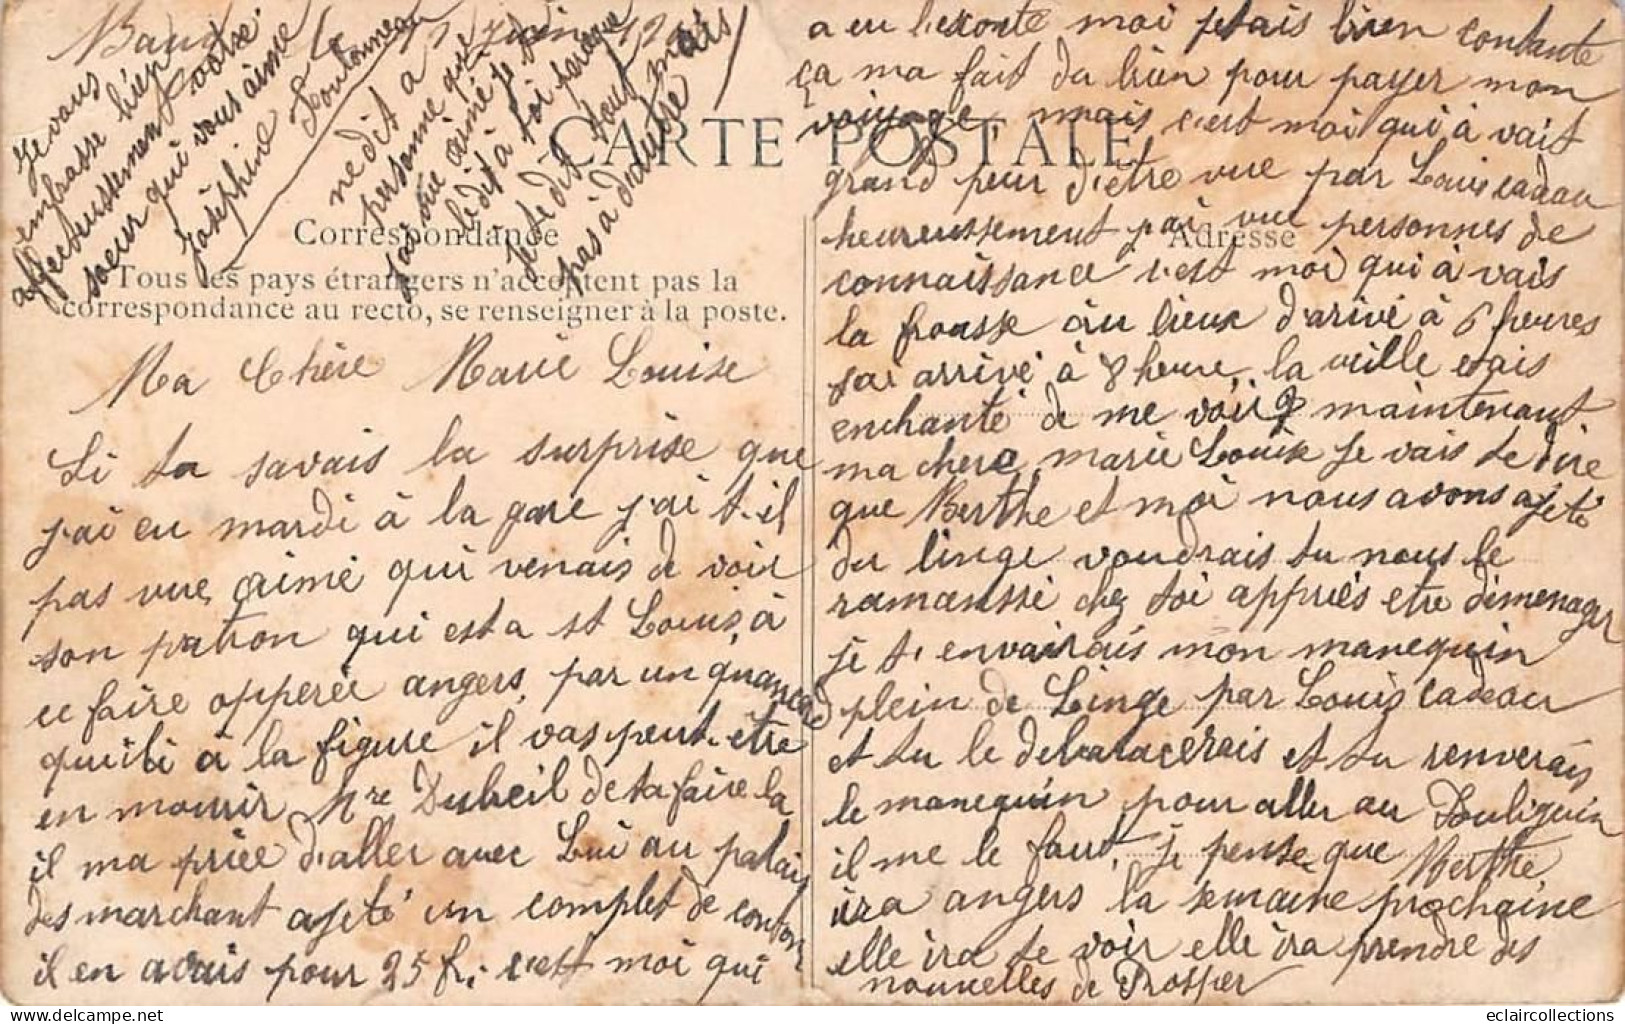 juin
CARTE POSTALE
Correspondance
Adresse
Tous les pays étrangers n'acceptent pas la
correspondance au recto, se renseigner à la poste.
Ma Chère Marie Louise
Si tu savais la surprise que
j'ai eu mardi à la gare j'ai t-il
pas vue aimé qui venais de voir
son patron qui est a st Louis, à
ce faire opperée angers, par un
qu'il à la figure il vas peut-être
en mourir Mre Dubeil de ta faire la
il ma priée d'aller avec Lui au palais
des marchant ajeté un complet de
il en avais pour 25 f. c'est moi qui
a eu moi jetais bien contante
ça ma fait du bien pour payer mon
voiyage, mais c'est moi qui à vait
grand peur d'etre vue par Louis cadeau
heureussement pas vue personnes de
connaissance c'est moi qui à vais
la frousse au lieux d'arivé à 6 heures
jai arrivé à 8 heure, la vieille etais
enchanté de me voir maintenant
ma chere marie Louise je vais te dire
que Berthe et moi nous avons ajeté
du linge voudrais tu nous le
ramaussé chez toi appriés etre dimenager
je t'envairais mon manequin
plein de Linge par Louis cadeau
et tu le debaracerais et tu renverais
le manequin pour aller au Douliguin
il me le faut, je pense que Berthe,
ira angers la semaine prochaine
elle ira te voir elle ira prendre des
nouvelles de Prosper
ne dit a
personne que
j'ai vue aimé je te
le dit à toi
je te dit tout mais
pas à d'autre
Je vous
embrasse bien
affectueussement votre
soeur qui vous aime
Joséphine
eclaircollections.com